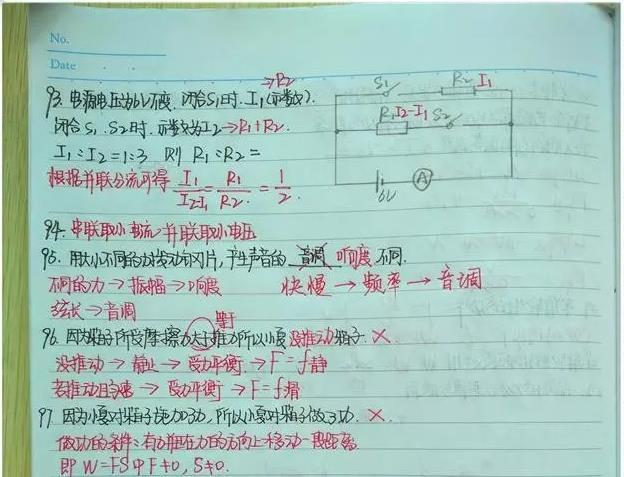 No.
Date
→R2
93. 电源电压为6V不变, 闭合S1时, I1(示数).
闭合S1、S2时, 示数为I2→R1+R2.
I1:I2=1:3 则 R1:R2=
根据并联分流可得 I1/I2-I1 = R1/R2 = 1/2.
S1 R2 I1
R1 I2-I1 S2
6V A
94. 串联取小电流,并联取小电压
95. 用大小不同的力拨动钢片,产生声音的 音调 响度 不同.
不同的力→振幅→响度 快慢→频率→音调
弦长→音调
等于
96. 因为箱子所受摩擦力大于推力所以小夏没推动箱子. ×
没推动→静止→受力平衡→F=f静
若推动且匀速→受力平衡→F=f滑
97 因为小夏对箱子施加了力, 所以小夏对箱子做了功. ×.
做功的条件:有力并在力的方向上移动一段距离
即 W=FS中F≠0, S≠0.